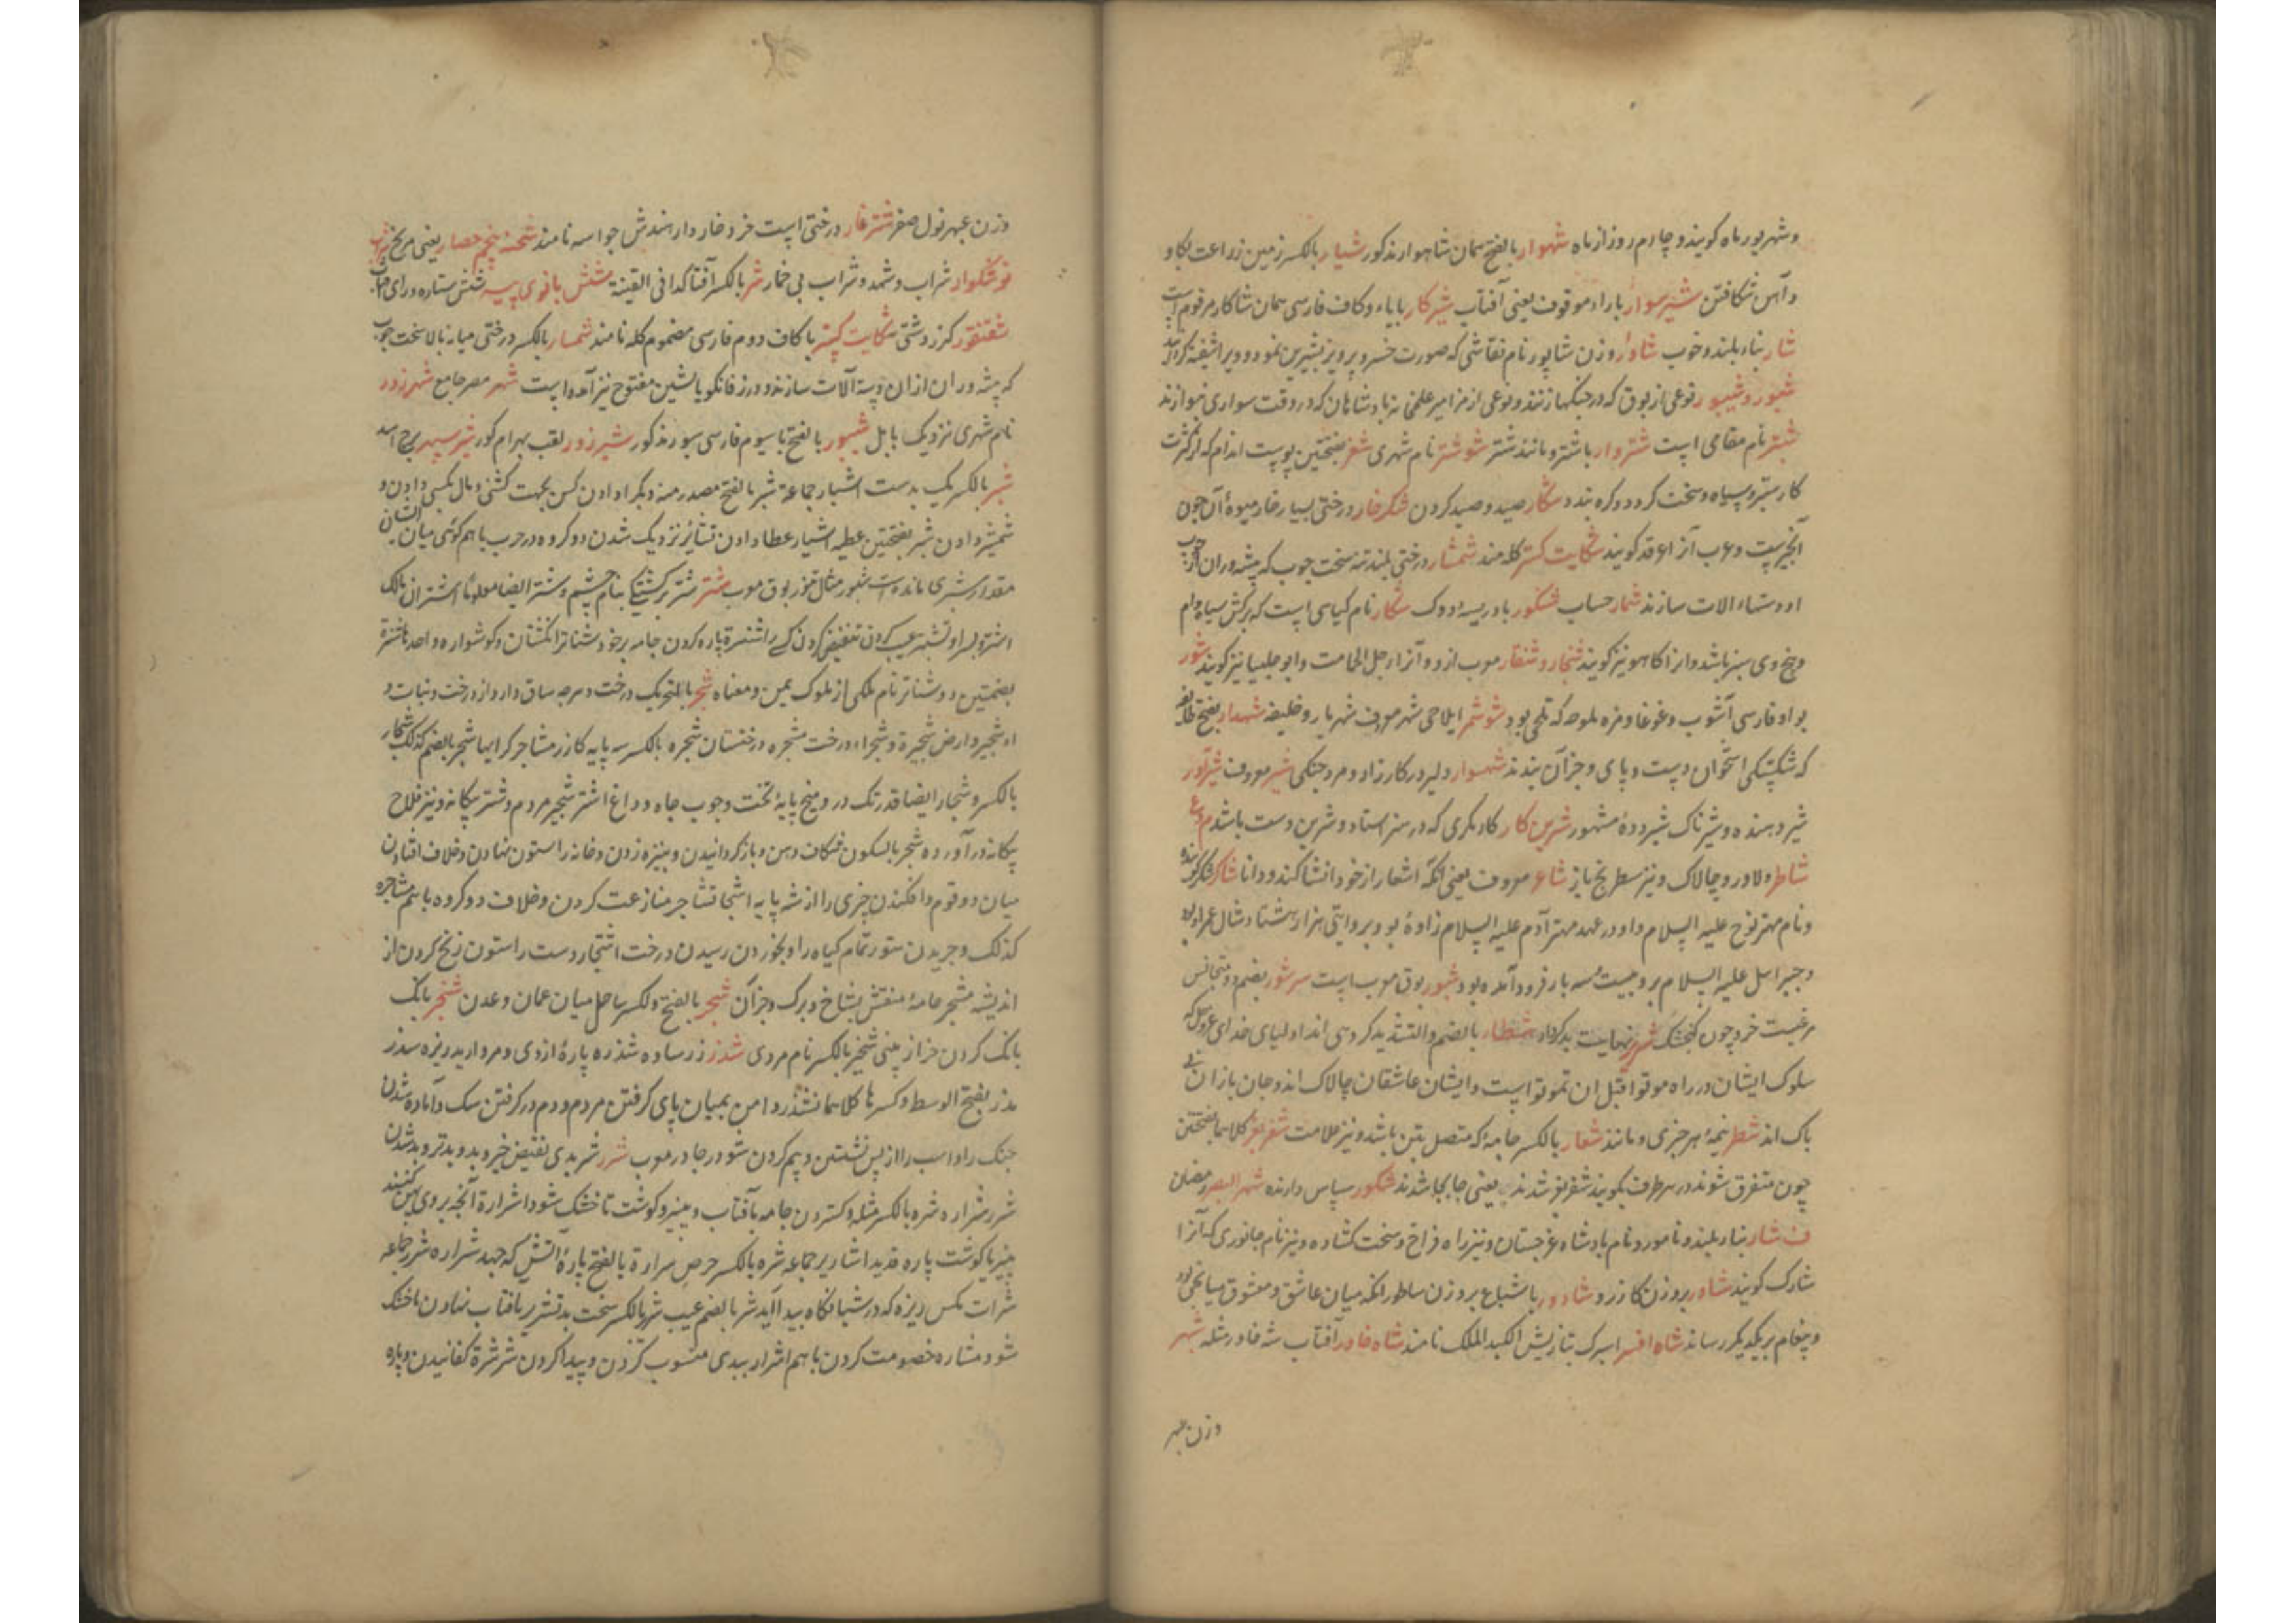 و شهریور ماه کویند و چهارم روز از ماه شهوار بالفتح همان شاهوار مذکور شیار بالکسر زمین زراعت بکاو
و آهن شکافتن شیر سوار باراء موقوف یعنی آفتاب شیر کار بایاء و کاف فارسی همان شاکار مرقوم است
شار بناء بلند و خوب شاور وزن شاپور نام نقاشی که صورت خسرو پرویز بشیرین نمود و ویرا شیفته کرد
شیپور نوعی از بوق که در جنکها زنند و نوعی از مزامیر پادشاهان که در وقت سواری نوازند
نام مقامی است شتروار باشتر و مانند شتر شوشتر نام شهری شغر بفتحتین پوست اندام که از کثرت
کار ستبر و سیاه و سخت کردد و کره بندد شکار صید و صید کردن شکرخار درختی بسیار خار میوه آن چون
انجیر است و عرب آنرا کویند شکایت کستر کله مند شمشار درختی بلند تنه سخت چوب که پیشه وران از چوب
او دستها و الات سازند شمار حساب شنکور بادریسه دوک شنکار نام کیاهی است که برکش سیاه فام
و بیخ وی سبز باشد و انرا کاهو نیز کویند شنجار و شنقار معرب ازو و آنرا رجل الحمامت و ابوجلسا نیز کویند شور
بواو فارسی آشوب و غوغا و مزه ملوحه که تلخ بود شوشمر ایلاحی شهر معروف شهریار و خلیفه شهدار بفتح
که شکستکی استخوان دست و پای و جز آن بندند شهسوار دلیر در کارزار و مرد جنکی شیر معروف شیرآور
شیر دهنده و شیرناک شیر دده مشهور شیرین کار کار دیکری که در هنر استاد و شیرین دست باشد
شاطر دلاور و چالاک و نیز شطرنج باز شاعر معروف یعنی انکه اشعار از خود انشا کند و دانا شاکر شکر کوینده
و نام مهتر نوح علیه السلام و او در عهد مهتر آدم علیه السلام زاده بود و بروایتی هزار و هشتاد سال عمر او بود
و جبرائیل علیه السلام برو بیست و سه بار فرود آمده بود شبور بوق معرب است سرشور بضم و متجانس
مرغیست خرد چون کنجشک بغایت بدکردار شطار بالضم و التشدید کروهی اند اولیای خدای عز و جل که
سلوک ایشان در راه موتوا قبل ان تموتوا است و ایشان عاشقان چالاک اند و جان بازان
پاک اند شطر نیمه هر چیزی و مانند شعار بالکسر جامه که متصل بتن باشد و نیز علامت شغر بغر کلاهما بفتحتین
چون متفرق شوند در هر طرف بکویند شغر بغر شدند یعنی جابجا شدند شکور سپاس دارنده شهر الصبر رمضان
ف شار بناء بلند و نامور و نام پادشاه غرجستان و نیز راه فراخ و سخت کشاده و نیز نام جانوری که آنرا
شارک کویند شاور بروزن کازر و شاوور باشباع بروزن ساطور انکه میان عاشق و معشوق میانجی بود
و پیغام بریکدیکر رساند شاه افسر اسپرک بتازیش اکلیل الملک نامند شاه خاور آفتاب شه خاور مثله شهر
وزن بهر
وزن عبهر نول صغر شترخار درختی است خرد خاردار هندش جواسه نامند شحنه پنجم حصار یعنی مریخ شراب
خوشکوار شراب و شهد و شراب بی خمار شر بالکسر آفتا کذا فی القنیة شش بانوی پیر شش ستاره ورای آفتاب
شقنقور کرز دشتی شکایت کستر با کاف دوم فارسی مضموم کله نامند شمسار بالکسر درختی میانه بالا سخت چوب
که پیشه وران از ان دسته آلات سازند و در زفانکویا بشین مفتوح نیز آمده است شهر مصر جامع شهر زور
نام شهری نزدیک بابل شیپور بالفتح با سیوم فارسی شپور مذکور شیر زور لقب بهرام کور شیر سپهر برج اسد
شبر بالکسر یک بدست اشبار جماعه شبر بالفتح مصدر منه و دیکر ادادن کس بجهت کشنی و مال بکسی دادن و
شمشیر دادن شبر بفتحتین عطیه اشبار عطا دادن تشابر نزدیک شدن دو کروه در حرب با هم کوئی میان ایشان
مقدار شبری مانده است شبور مثال تنور بوق معرب شتر شتر برکشتکی بنام چشم و شتر ایضا معلوما اشتران مالک
اشتر و پسر او تشتیر عیب کردن تنقیض کردن کسی را شنترة پاره کردن جامه بر خود شناتر انکشتان و کوشواره واحدها شنترة
بضمتین ذو شناتر نام ملکی از ملوک یمن و معناه شجر بالتحریک درخت و هرچه ساق دارد از درخت و نبات و
ارض شجیرة و شجراء درخت مشجره درختستان شجره بالکسر سه پایه کازر مشاجر کرایها شجر بالضم کذلک شجار
بالکسر و شجار ایضا قدرنک در و میخ پایه تخت و چوب چاه و داغ اشتر شجیر مردم و شتر بیکانه و نیز فلاح
بیکانه در آورده شجر بالسکون شکاف دهن و باز کردانیدن و بنیزه زدن و خانه را ستون نهادن و خلاف افتادن
میان دو قوم و افکندن چیزی را از شه پایه اشجار تشاجر منازعت کردن و خلاف دو کروه با هم مشاجره
کذلک و چریدن ستور تمام کیاه را و بخوردن رسیدن درخت اشتجار دست را ستون زنخ کردن از
اندیشه مشجر جامه منقش بشاخ و برک و جز آن شحر بالفتح و الکسر ساحل میان عمان و عدن شخیر بانک
بانک کردن خر از بینی شخیر بالکسر نام مردی شذر زر ساده شذره پارهٔ از وی و مروارید ریزه شذر
مذر بفتح الوسط و کسرها کلاهما تشذر دامن بمیان پای کرفتن مردم و دم در کرفتن سک و آماده شدن
جنک را و اسب را از پس نشستن و بیم کردن شوذر چادر معرب شرر شر بدی نقیض خیر و بد و بدتر و بد شدن
شرر شراره شره بالکسر مثله و کستردن جامه بآفتاب و پنیر و کوشت تا خشک شود اشرارة آنچه بر وی پهن کنند
پنیر یا کوشت پاره قدید اشاریر جماعه شره بالکسر حرص شرارة بالفتح پارهٔ آتش که جهد شراره شرر جماعه
شرات مکس ریزه که در شبانکاه پیدا آید شر بالضم عیب شریر بالکسر سخت بد تشریر بافتاب نهادن تا خشک
شود مشاره خصومت کردن با هم اشرار ببدی منسوب کردن و پیدا کردن شرشرة کفانیدن و پاره